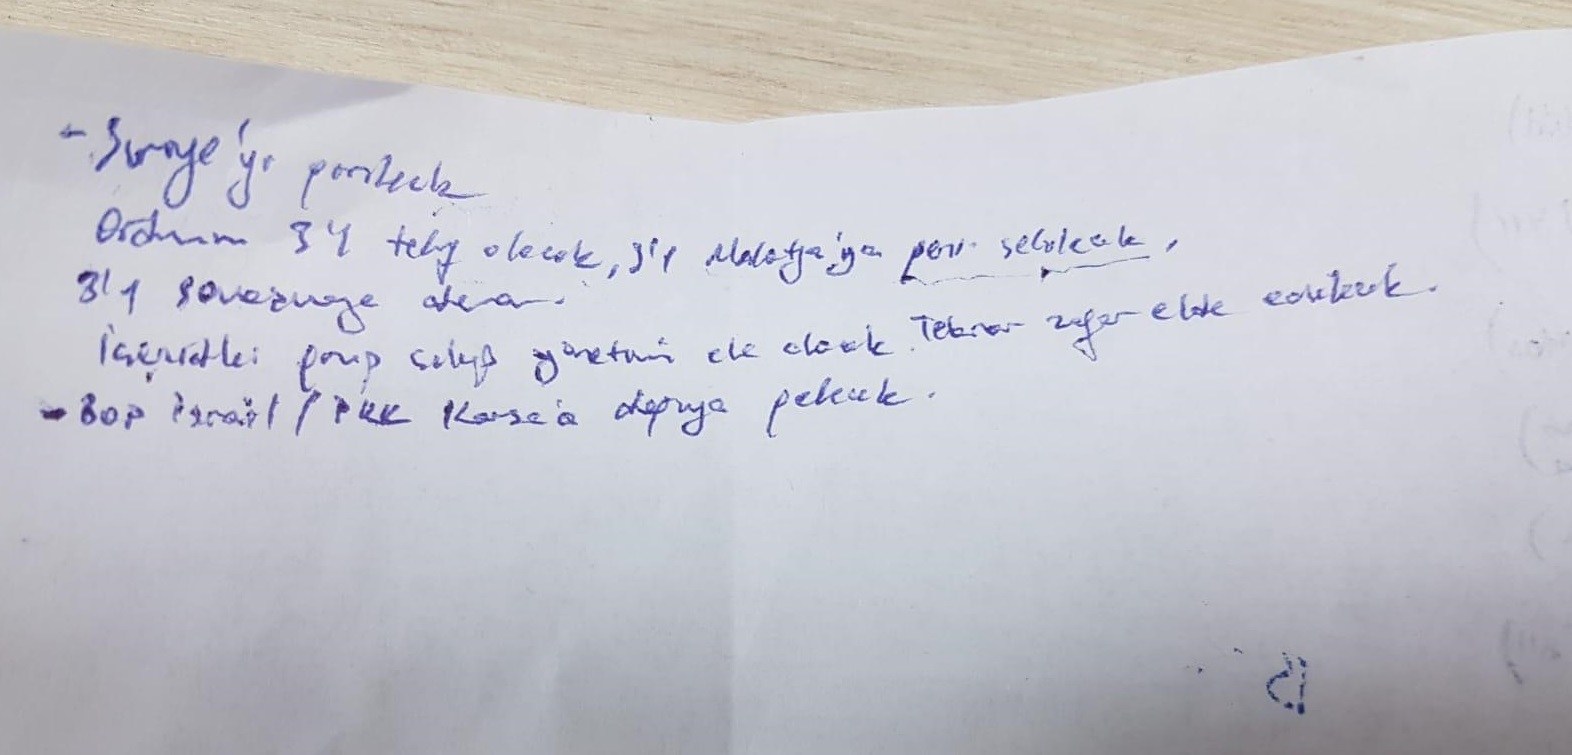 - Suriye'ye girilecek
Ordunun 3/4 telef olacak, 3'1 Malatya'ya geri çekilecek,
3'1 savaşmaya devam.
İçerideki grup çıkıp yönetimi ele alacak. Tekrar zafer elde edilecek.
- Bop İsrail / PKK Kars'a doğruya gelecek.